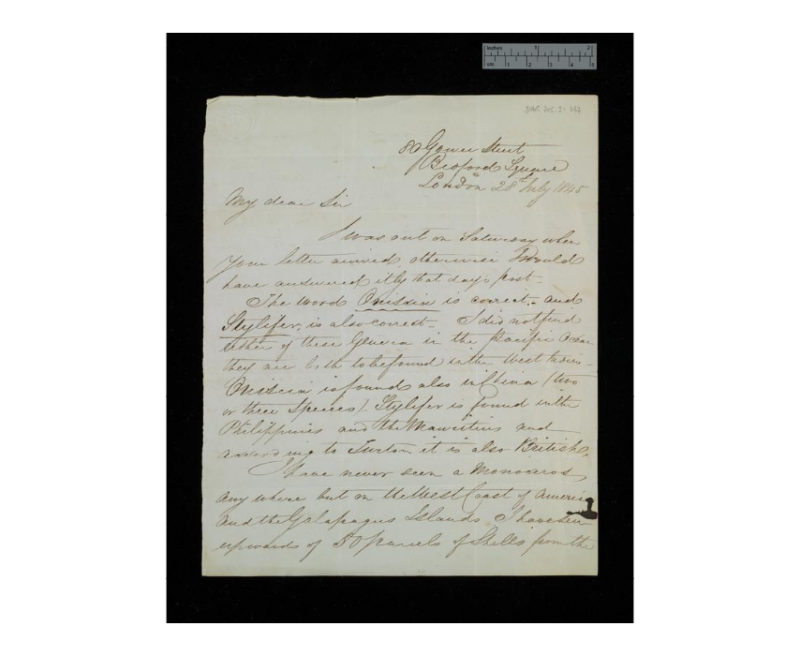 DAR 205.3:
80 Gower Street
Bedford Square
London 28th July 1845
My dear Sir
I was out on Saturday when
your letter arrived, otherwise I would
have answered it by that days post—
The word Oniscia is correct, and
Stylifer, is also correct— I did not find
either of these Genera in the Pacific Ocean
they are both to be found in the West Indies
Oniscia is found also in China (two
or three Species). Stylifer is found in the
Philippines and the Mauritius and
according to Turton it is also British.
I have never seen a Monoceros
any where but on the West Coast of America
and the Galapagus Islands. I have seen
upwards of 50 parcels of Shells from the
Inches 1 2
cm 1 2 3 4 5